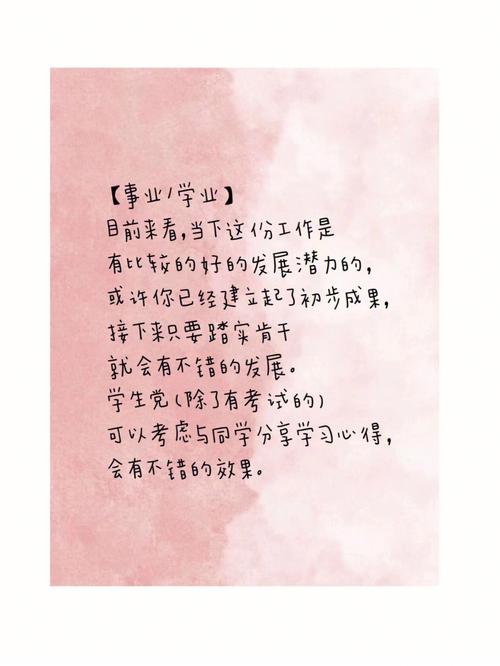 【事业/学业】
目前来看,当下这份工作是
有比较的好的发展潜力的,
或许你已经建立起了初步成果,
接下来只要踏实肯干
就会有不错的发展。
学生党(除了有考试的)
可以考虑与同学分享学习心得,
会有不错的效果。